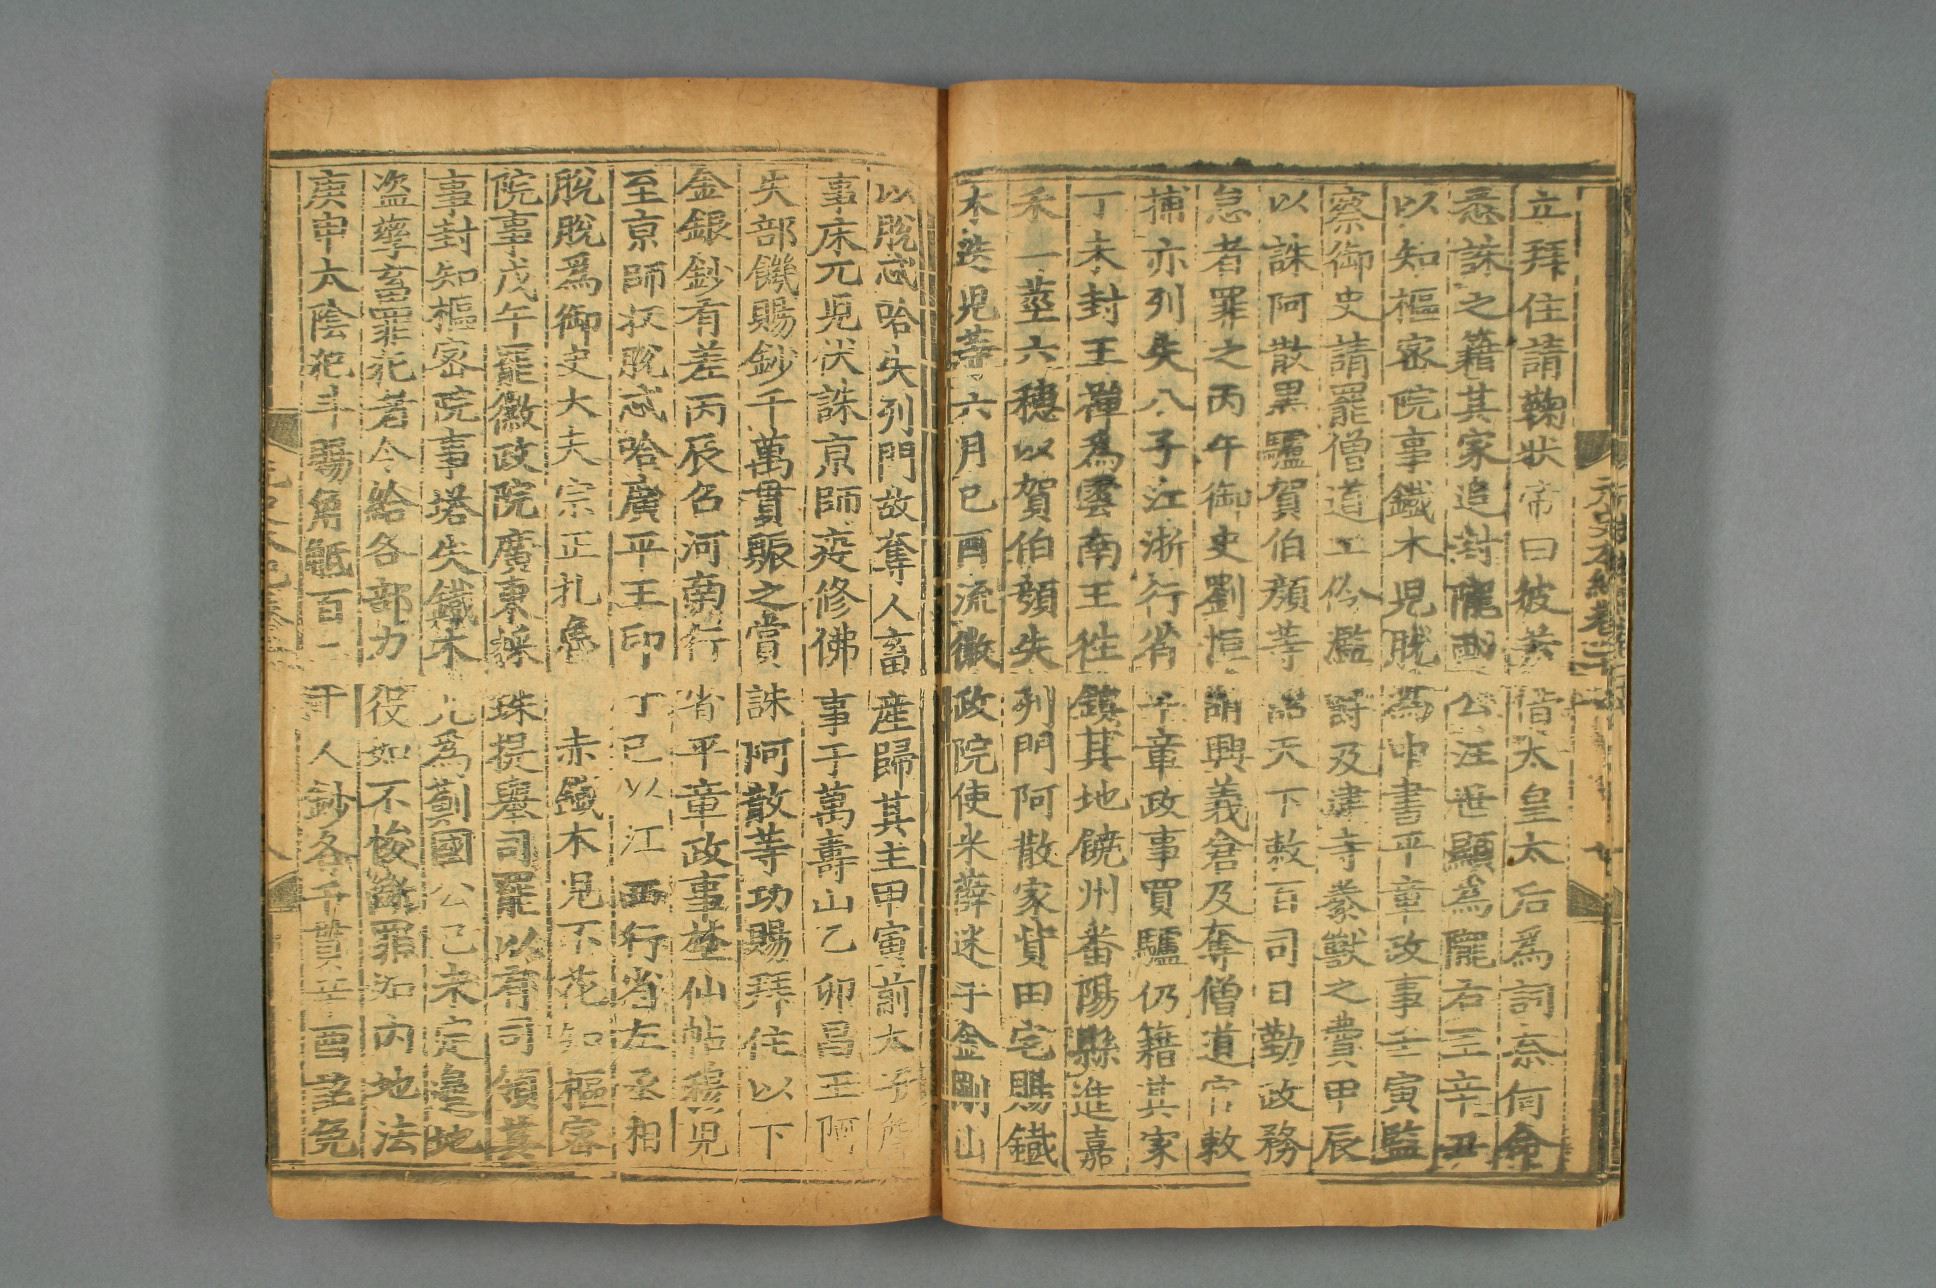 立拜住請鞠狀帝曰彼若借太皇太后爲詞奈何命
悉誅之籍其家追封隴西公汪世顯爲隴右王辛丑
以知樞密院事鐵木兒脫爲中書平章政事壬寅監
察御史請罷僧道工伶濫爵及建寺豢獸之費甲辰
以誅阿散黑驢賀伯顏等詔天下敕百司日勤政務
怠者罪之丙午御史劉恒請興義倉及奪僧道官敕
捕亦列失八子江浙行省平章政事買驢仍籍其家
丁未封王禪爲雲南王徃鎮其地饒州番陽縣進嘉
禾一莖六穗以賀伯顏失列門阿散家貲田宅賜鐵
木迭兒等六月己酉流徽政院使米薛迷于金剛山
元史本紀卷二十七
以脫忒哈失列門故奪人畜産歸其主甲寅前太子詹
事床兀兒伏誅京師疫修佛事于萬壽山乙卯昌王阿
失部饑賜鈔千萬貫賑之賞誅阿散等功賜拜住以下
金銀鈔有差丙辰召河南行省平章政事埜仙帖穆兒
至京師收脫忒哈廣平王印丁巳以江西行省左丞相
脫脫爲御史大夫宗正扎魯 赤鐵木兒不花知樞密
院事戊午罷徽政院廣東採珠提舉司罷以有司領其
事封知樞密院事塔失鐵木兒爲薊國公己未定邊地
盜孳畜罪犯者令給各部力役如不悛斷罪如內地法
庚申太陰犯斗賜角觝百二十人鈔各千貫辛酉詔免